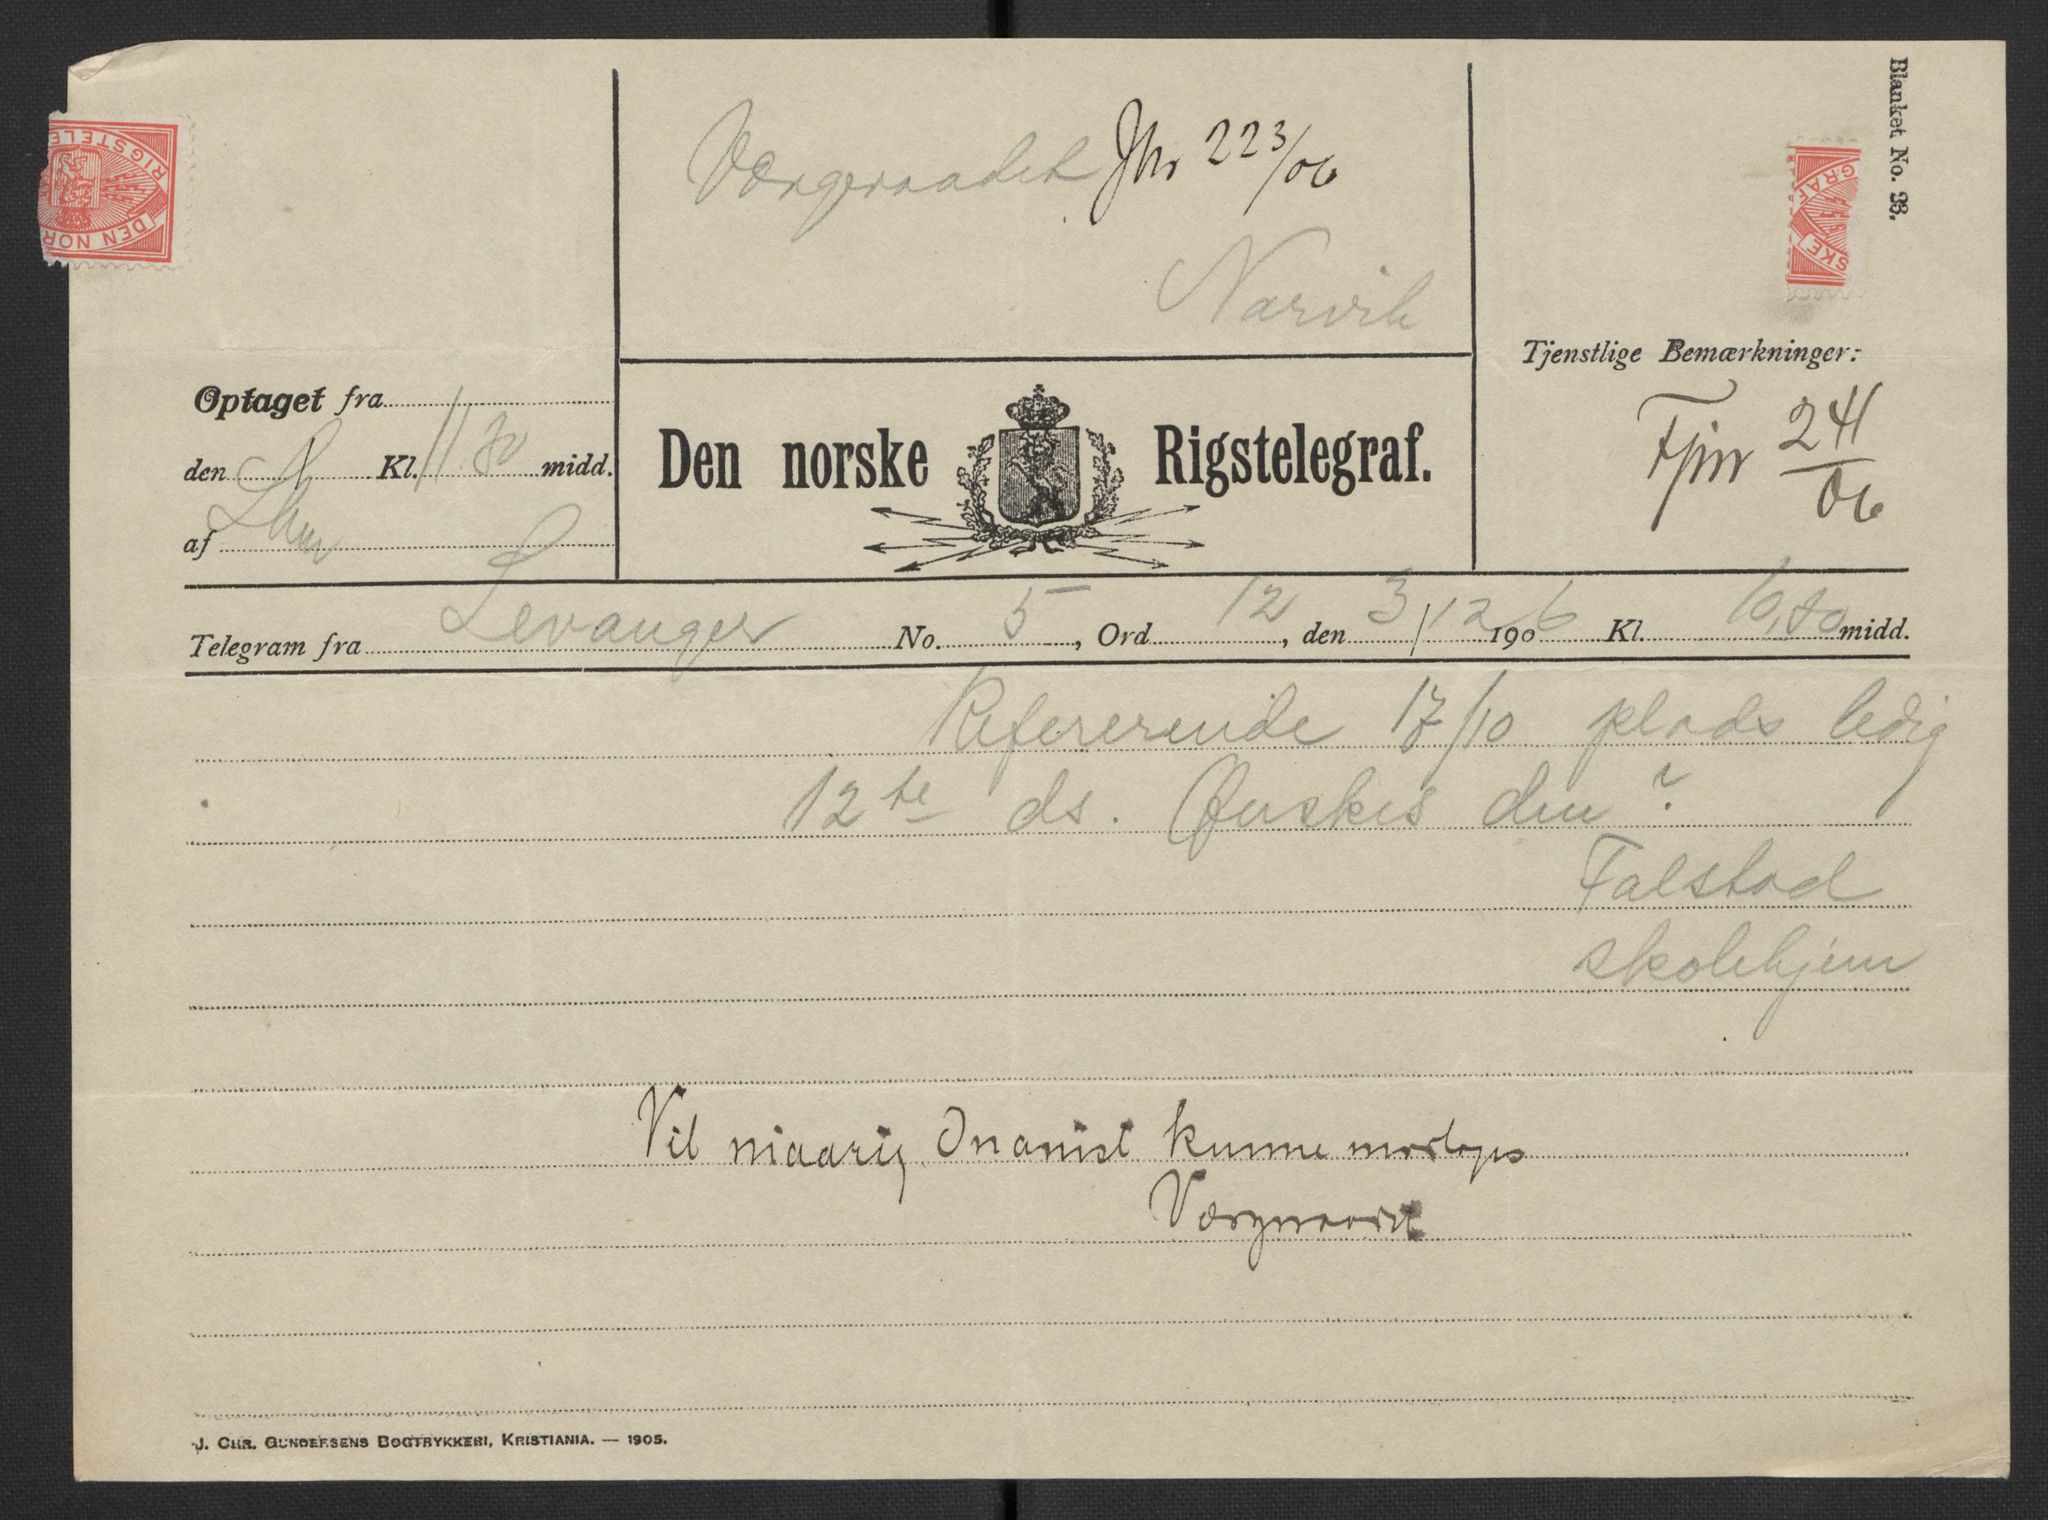 Blanket No. 23.
RIGSTELE
DEN NOR
GRAF
SKE
Værgeraadet Jnr 223/06
Narvik
Tjenstlige Bemærkninger:
Fjnr 241/06
Optaget fra
den Kl. 11.30 midd.
af
Den norske Rigstelegraf.
Telegram fra Levanger No. 5, Ord 12, den 3/12 1906 Kl. 10,80 midd.
Refererende 17/10 plads ledig
12te ds. Ønskes den?
Falstad
skolehjem
Vil niaarig Onanist kunne modtages
Værgeraadet
J. CHR. GUNDERSENS BOGTRYKKERI, KRISTIANIA. — 1905.